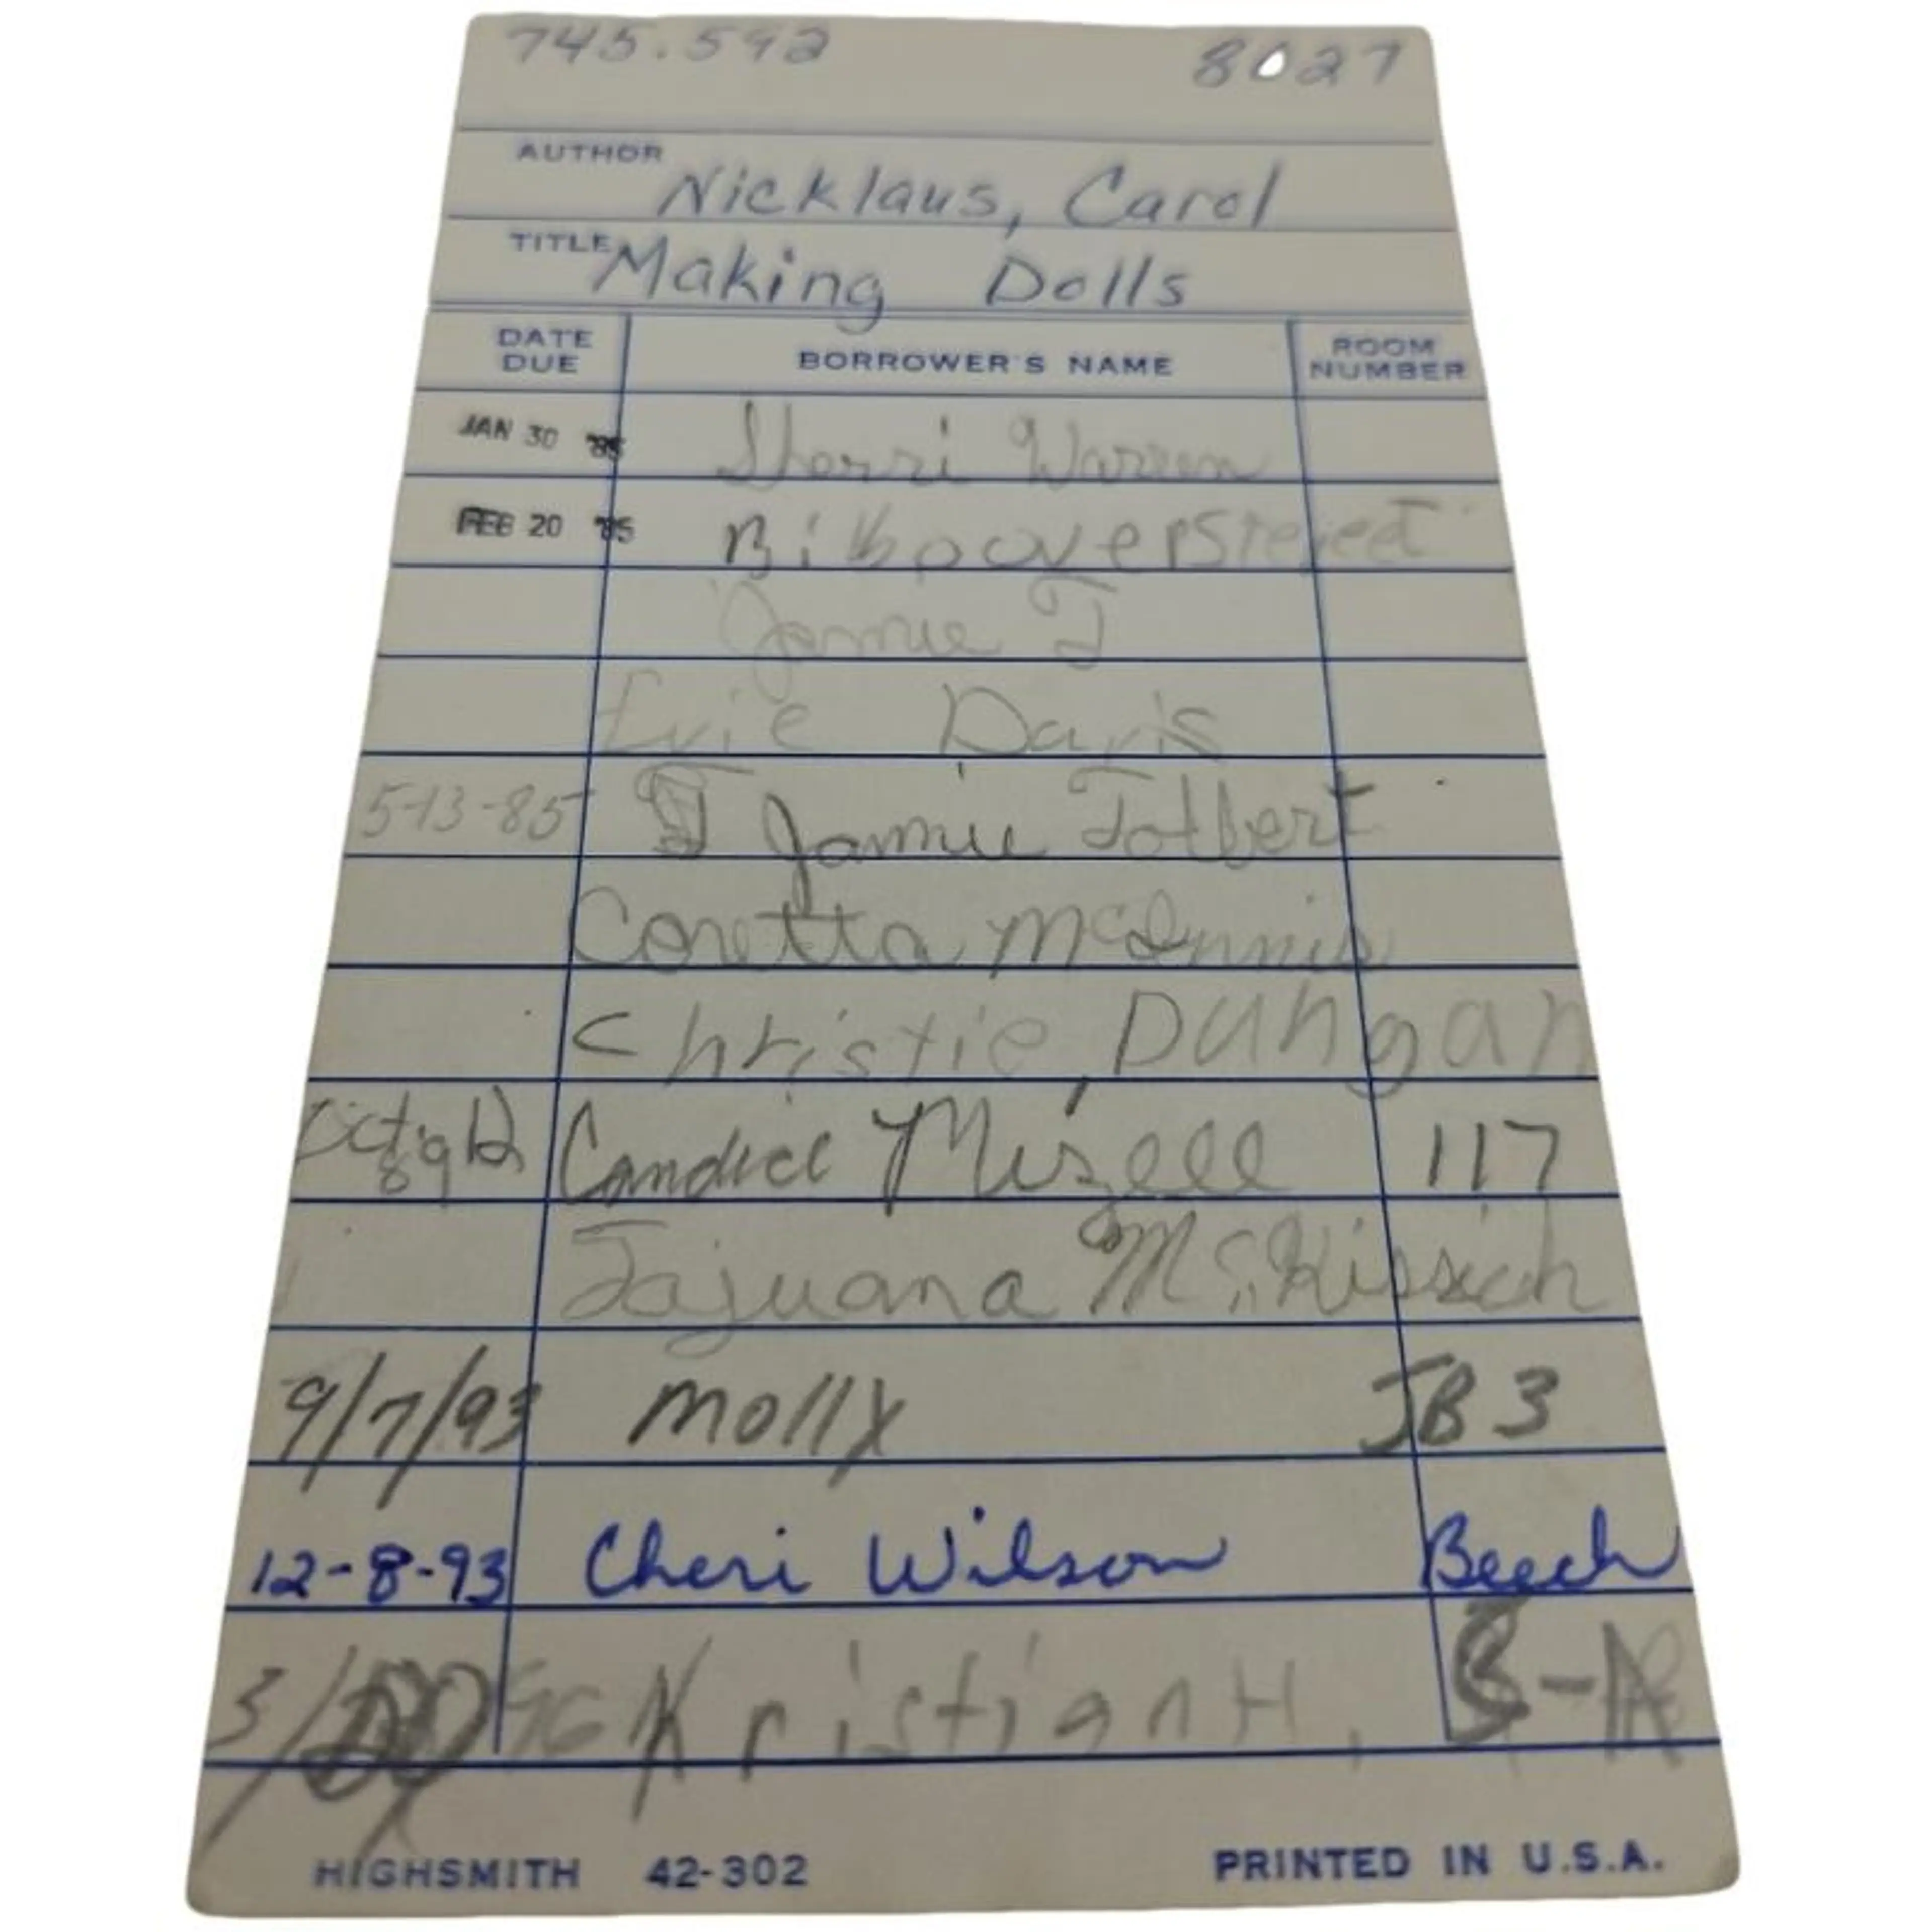 745.592 8027
AUTHOR Nicklaus, Carol
TITLE Making Dolls
DATE DUE BORROWER'S NAME ROOM NUMBER
JAN 30 '85 Sherri Warren
FEB 20 '85 Overstreet
Jamie T
Evie Davis
5-13-85 Jamie Tolbert
Coretta McInnis
Christie Dungan
Candice Mizell 117
Tajuana McKissich
9/7/93 Molly JB 3
12-8-93 Cheri Wilson Beech
3/ 96 Kristian H.
HIGHSMITH 42-302 PRINTED IN U.S.A.